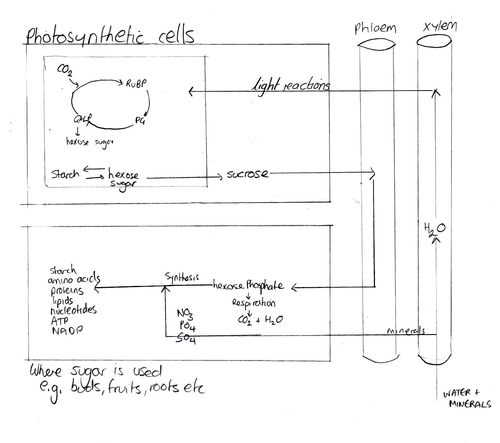 Photosynthetic cells
Phloem
Xylem
CO2
RuBP
GALP
PG
hexose sugar
light reactions
Starch
hexose
sugar
sucrose
H2O
starch
amino acids
proteins
lipids
nucleotides
ATP
NADP
Synthesis
hexose Phosphate
Respiration
CO2 + H2O
NO3
PO4
SO4
minerals
Where sugar is used
e.g. buds, fruits, roots etc
WATER +
MINERALS